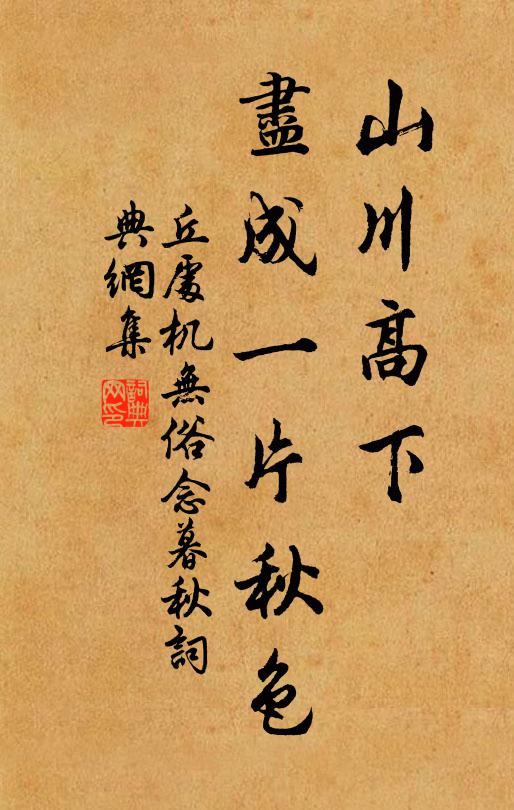 山川高下
盡成一片秋色
丘處机無俗念暮秋詞
典網集
詞典網印